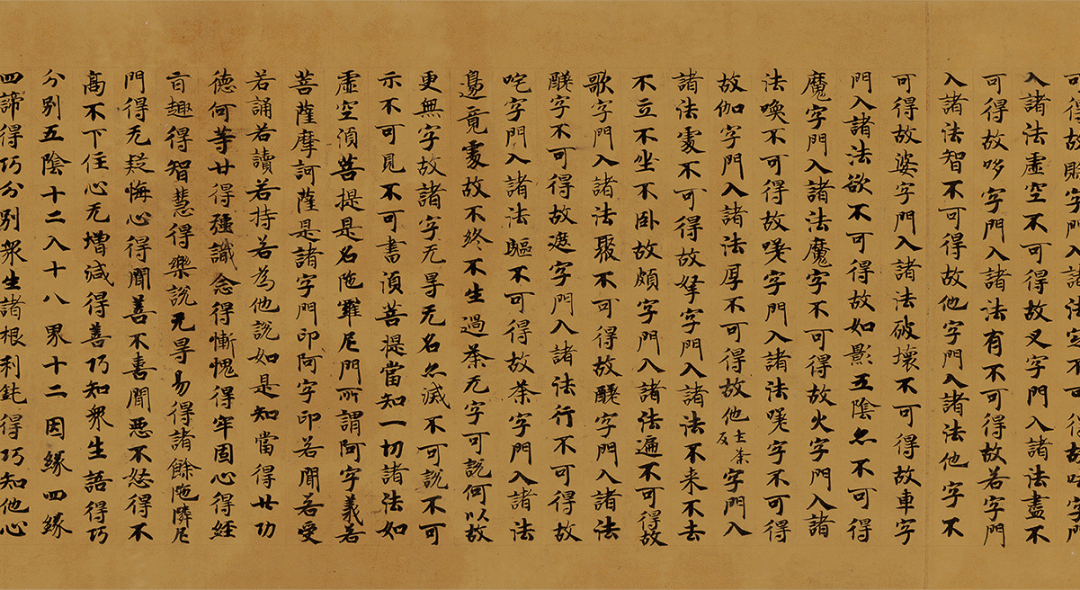 可得故賖字門入諸法定不可得故呿字門
入諸法虛空不可得故叉字門入諸法盡不
可得故哆字門入諸法有不可得故若字門
入諸法智不可得故他字門入諸法他字不
可得故婆字門入諸法破壞不可得故車字
門入諸法欲不可得故如影五陰亦不可得
魔字門入諸法魔字不可得故火字門入諸
法喚不可得故嗟字門入諸法嗟字不可得
故伽字門入諸法厚不可得故他土荼反字門入
諸法處不可得故拏字門入諸法不来不去
不立不坐不卧故頗字門入諸法遍不可得故
歌字門入諸法聚不可得故醝字門入諸法
醝字不可得故遮字門入諸法行不可得故
咤字門入諸法驅不可得故荼字門入諸法
邊竟處故不終不生過荼无字可說何以故
更無字故諸字无㝵无名亦滅不可說不可
示不可見不可書須菩提當知一切諸法如
虛空須菩提是名陁羅尼門所謂阿字義若
菩薩摩訶薩是諸字門印阿字印若聞若受
若誦若讀若持若為他說如是知當得廿功
德何等廿得強識念得慚愧得牢固心得經
旨趣得智慧得樂說无㝵易得諸餘陁隣尼
門得无疑悔心得聞善不喜聞惡不怒得不
高不下住心无增減得善巧知眾生語得巧
分別五陰十二入十八界十二因緣四緣
四諦得巧分別眾生諸根利鈍得巧知他心